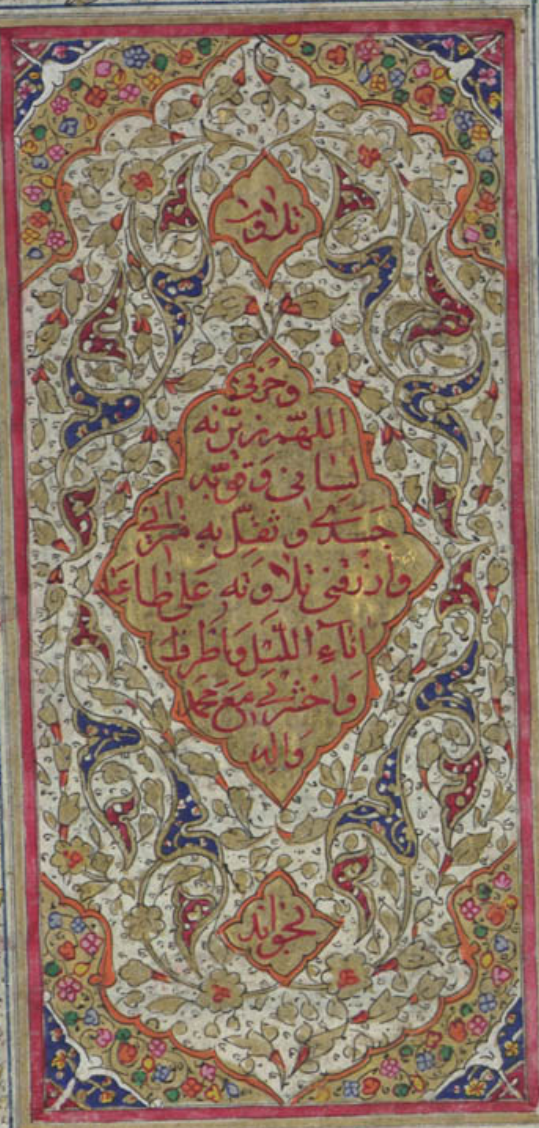 تلاوت
وحزنی
اللهم زین به
لسانی و قو به
جسدی و ثقل به میزانی
وارزقنی تلاوته علی طاعتک
اناء اللیل واطراف
واحشرنی مع محمد
واله
بخواند